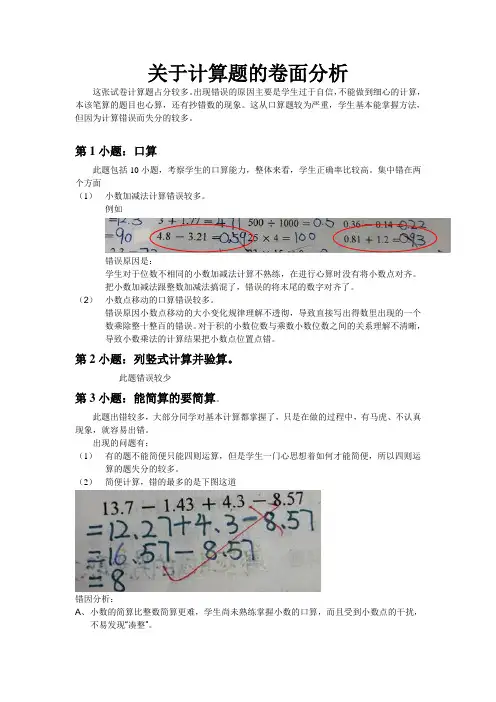 关于计算题的卷面分析
这张试卷计算题占分较多。出现错误的原因主要是学生过于自信,不能做到细心的计算,
本该笔算的题目也心算,还有抄错数的现象。这从口算题较为严重,学生基本能掌握方法,
但因为计算错误而失分的较多。
第1小题:口算
此题包括10小题,考察学生的口算能力,整体来看,学生正确率比较高。集中错在两
个方面
(1) 小数加减法计算错误较多。
例如
=12.3 3 + 1.77 = 4.77 500 ÷ 1000 = 0.5 0.36 − 0.14 = 0.22
=90 4.8 − 3.21 = 0.59 25 × 4 = 100 0.81 + 1.2 = 0.93
错误原因是:
学生对于位数不相同的小数加减法计算不熟练,在进行心算时没有将小数点对齐。
把小数加减法跟整数加减法搞混了,错误的将末尾的数字对齐了。
(2) 小数点移动的口算错误较多。
错误原因小数点移动的大小变化规律理解不透彻,导致直接写出得数里出现的一个
数乘除整十整百的错误。对于积的小数位数与乘数小数位数之间的关系理解不清晰,
导致小数乘法的计算结果把小数点位置点错。
第2小题:列竖式计算并验算。
此题错误较少
第3小题:能简算的要简算.
此题出错较多,大部分同学对基本计算都掌握了。只是在做的过程中,有马虎、不认真
现象,就容易出错。
出现的问题有:
(1) 有的题不能简便只能四则运算,但是学生一门心思想着如何才能简便,所以四则运
算的题失分的较多。
(2) 简便计算,错的最多的是下图这道
13.7 − 1.43 + 4.3 − 8.57
=12.27+4.3−8.57
=16.57−8.57
=8
错因分析:
A、小数的简算比整数简算更难,学生尚未熟练掌握小数的口算,而且受到小数点的干扰,
不易发现“凑整”。